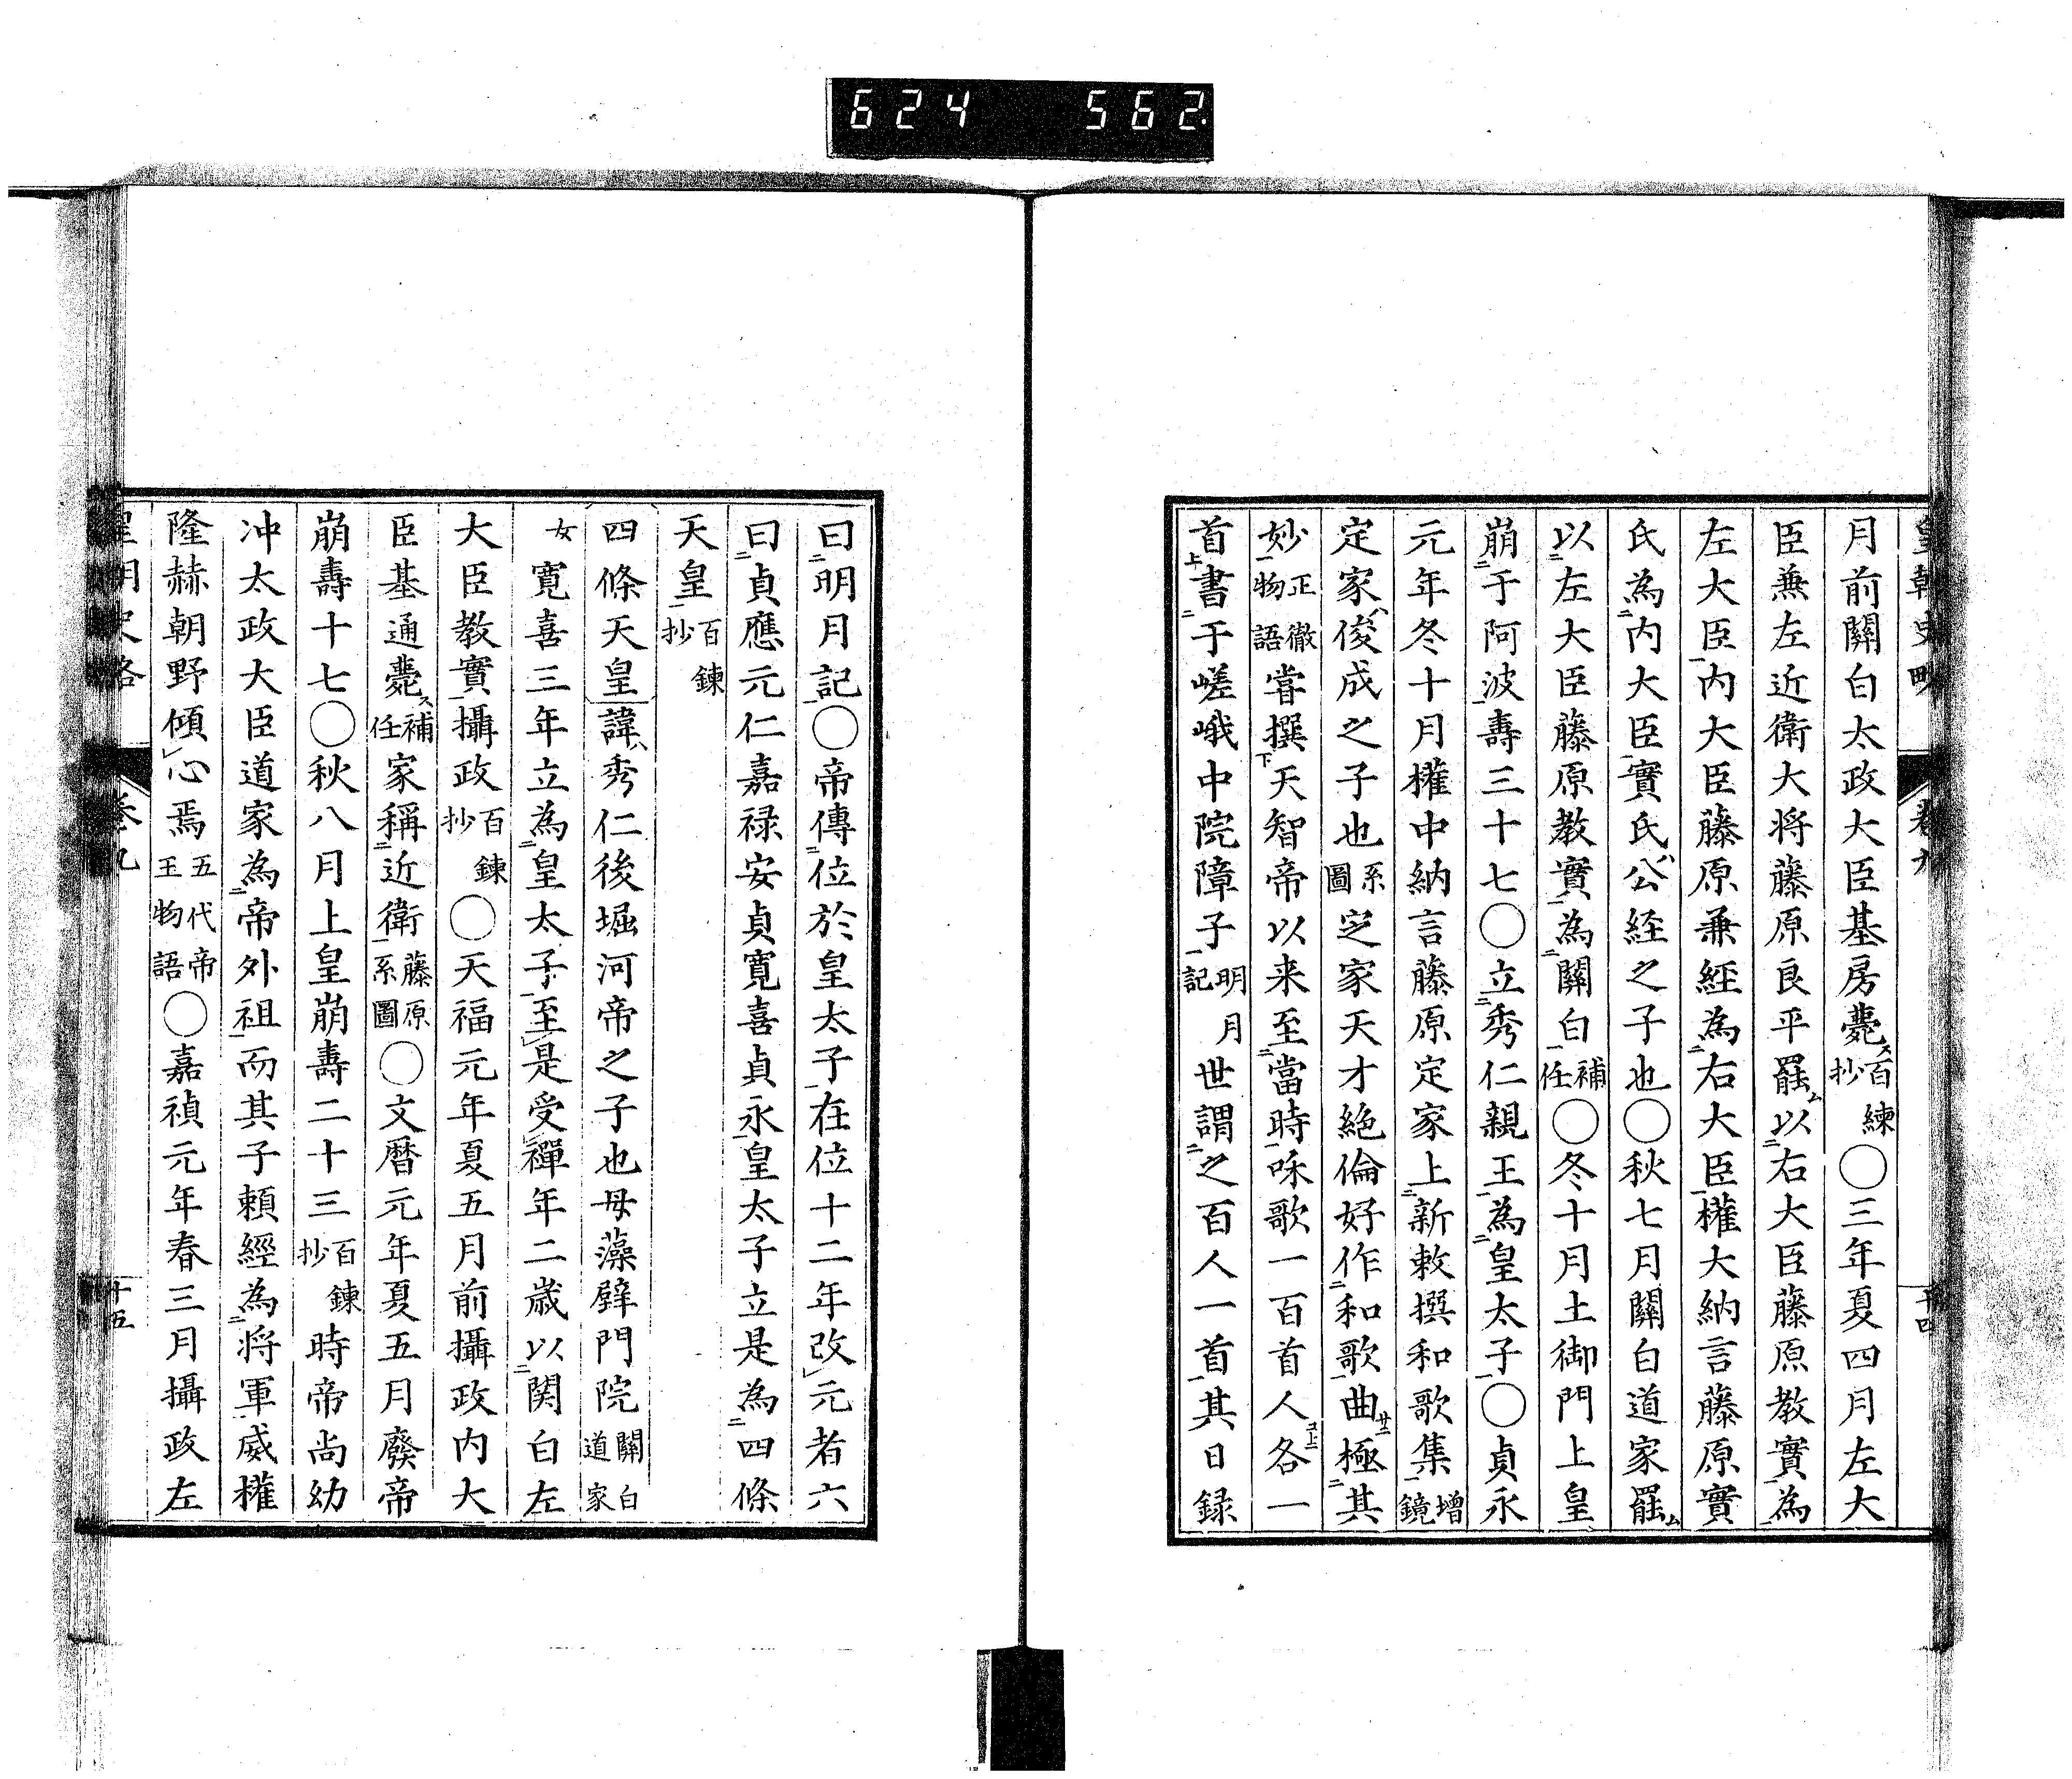 624 562
皇朝史略 卷九 十四
月前關白太政大臣基房薨ス百練抄〇三年夏四月左大
臣兼左近衛大将藤原良平罷ム以二右大臣藤原教實一為二
左大臣一内大臣藤原兼經為二右大臣一權大納言藤原實
氏為二内大臣一實氏ハ公経之子也〇秋七月關白道家罷ム
以二左大臣藤原教實一為二關白一補任〇冬十月土御門上皇
崩二于阿波一壽三十七〇立二秀仁親王一為二皇太子一〇貞永
元年冬十月權中納言藤原定家上二新敕撰和歌集一増鏡
定家ハ俊成之子也系圖定家天才絶倫好作二和歌一曲極二其
妙一正徹物語嘗撰下天智帝以来至二當時一咏歌一百首人各一
首上書二于嵯峨中院障子一明月記世謂二之百人一首一其日録
曰二明月記一〇帝傳二位於皇太子一在位十二年改レ元者六
曰二貞應元仁嘉禄安貞寛喜貞永一皇太子立是為二四條
天皇一百鍊抄
四條天皇諱ハ秀仁後堀河帝之子也母藻壁門院關白道家
女寛喜三年立為二皇太子一至レ是受レ禪年二歳以二関白左
大臣教實一攝政百鍊抄〇天福元年夏五月前攝政内大
臣基通薨ス補任家稱二近衛一藤原系圖〇文暦元年夏五月廢帝
崩壽十七〇秋八月上皇崩壽二十三百鍊抄時帝尚幼
冲太政大臣道家為二帝外祖一而其子頼經為二将軍威權
隆赫朝野傾レ心焉五代帝王物語〇嘉禎元年春三月攝政左
皇朝史略 卷九 十五